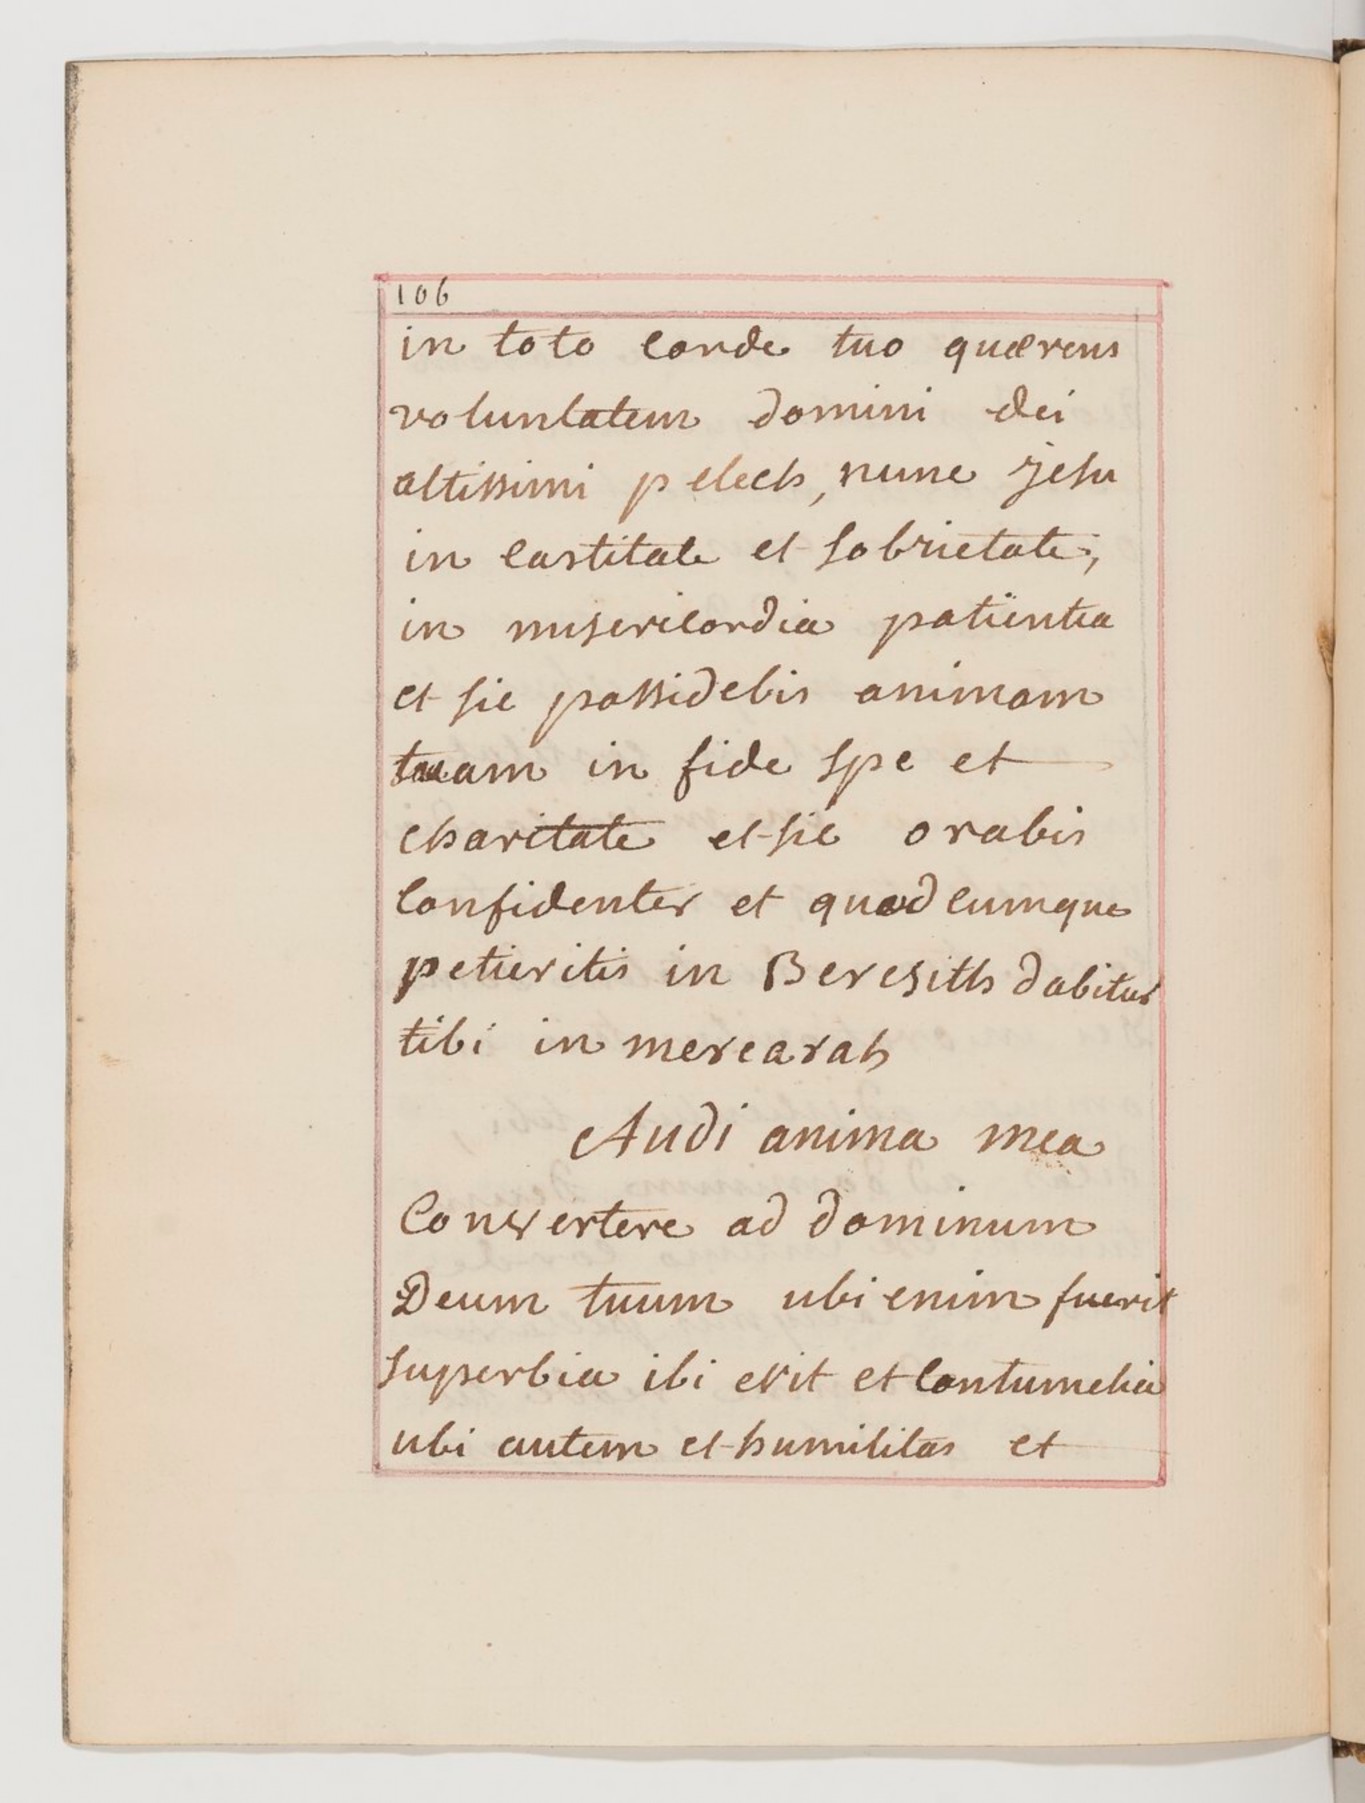 106
in toto corde tuo quærens
voluntatem domini dei
altissimi pelech, nunc jesu
in castitate et sobrietate;
in misericordia patientia
et sic possidebis animam
tuam in fide spe et
charitate et sic orabis
confidenter et quodcumque
petieritis in Beresith dabitur
tibi in mercarah
Audi anima mea
Convertere ad dominum
Deum tuum ubi enim fuerit
superbia ibi erit et contumelia
ubi autem et humilitas et